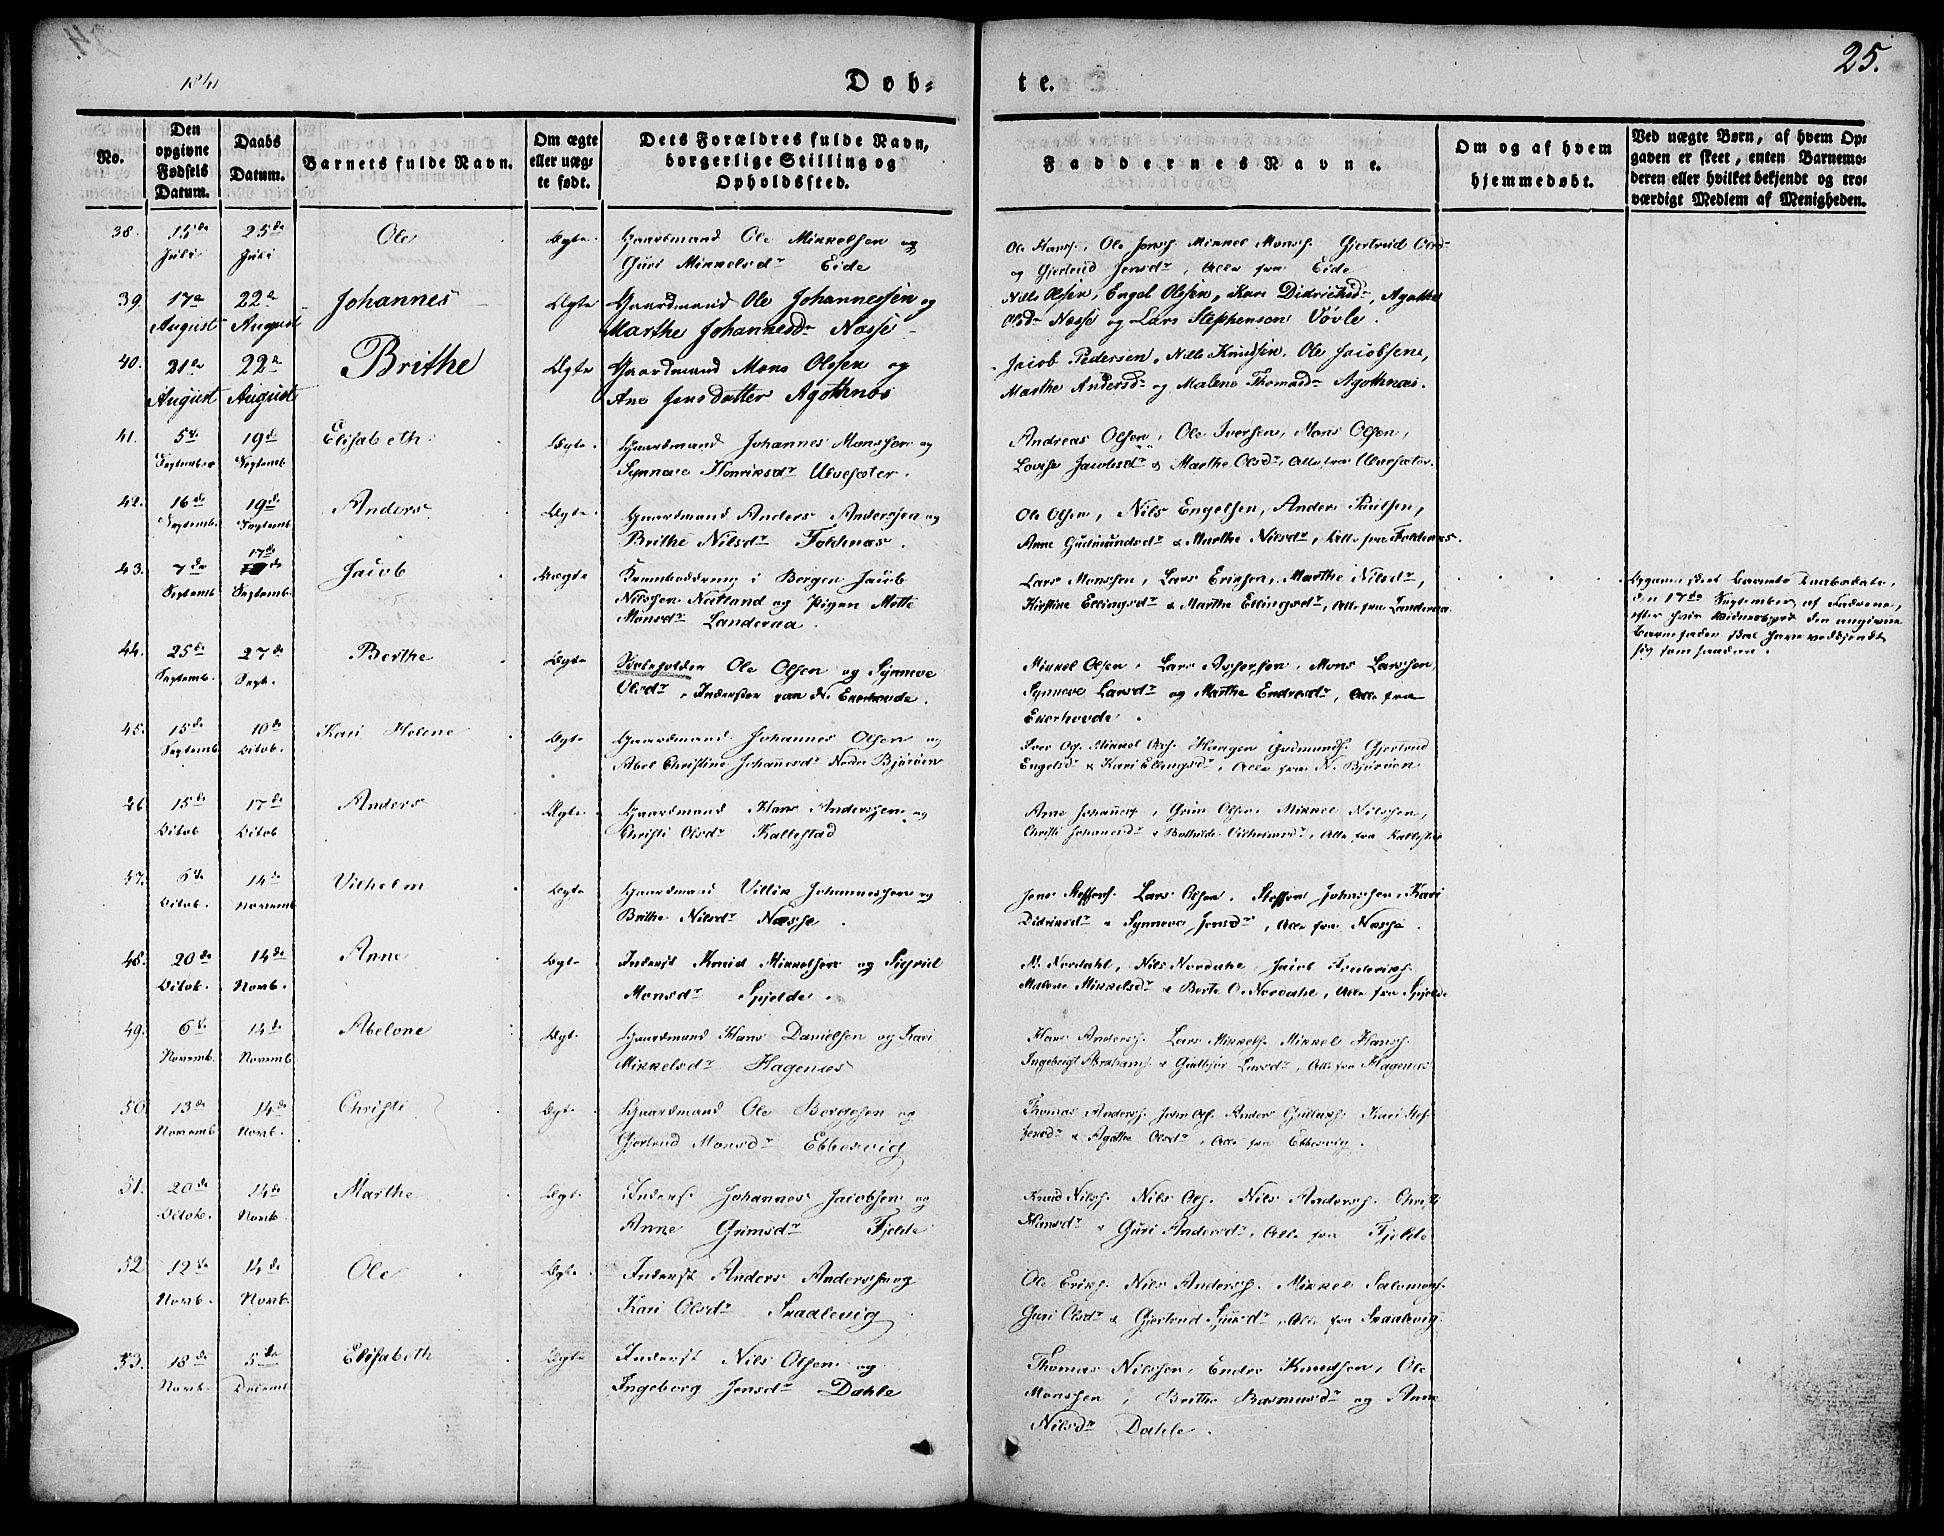 25.
1841
Døb-
te.
No.
Den opgivne Fødsels Datum.
Daabs Datum.
Barnets fulde Navn.
Om ægte eller uæg-
te født.
Dets Forældres fulde Navn,
borgerlige Stilling og
Opholdssted.
Faddernes Navne.
Om og af hvem
hjemmedøbt.
Ved uægte Børn, af hvem Op-
gaven er skeet, enten Barnemo-
deren eller hvilket bekjendt og tro-
værdigt Medlem af Menigheden.
38. 15de Juli 25de Juli Ole Ægte. Gaardmand Ole Mikkelsen og
Guri Mikkelsdr Eide
Ole Hansf. Ole Jonsf. Mikkel Monsf. Gjertrud Olsd
og Gjertrud Jensdr, Alle fra Eide
39. 17de August 22de August Johannes Ægte Gaardmand Ole Johannessen og
Marthe Johannesdr Nosse
Nills Olsen, Engel Olssen, Kari Didriksdr, Agathe
Olsdr Nesse og Lars Stephensen Vøvle.
40. 21de August 22de August Brithe Ægte Gaardmand Mons Olssen og
Ane Jensdatter Agothnes
Jacob Pedersen, Nills Knudsen, Ole Jacobsen,
Marthe Andersdr og Malene Thomasdr Agothnæs.
41. 5te Septembr 19de Septemb Elisabeth Ægte. Gaardmand Johannes Monssen og
Synneve Henriksdr Ulvesæter.
Andreas Olsen, Ole Iversen, Mons Olsen,
Lovise Jacobsdr & Marthe Olsdr, Alle fra Ulvesæter.
42. 16de Septemb. 19de Septemb Anders Ægte. Gaardmand Anders Anderssen og
Brithe Nilsdr Foldnæs.
Ole Olsen, Nils Engelsen, Anders Paulsen,
Anne Gudmundsdr & Marthe Nilsdr, Alle fra Foldnæs.
43. 7de Septemb 17de Septemb. Jacob Uægte Kramboddreng i Bergen Jacob
Nilssen Natland og Pigen Mette
Monsdr Landeraa.
Lars Monssen, Lars Eriksen, Marthe Nilsdr,
Kirstine Ellingsdr & Marthe Ellingsdr, Alle fra Landeraa
Opgaven skeet Barnets Daabsdato,
den 17de September af Fadrene,
efter hvis Vidnesbyrd den angivne
Barnefader skal have vedkjendt
sig som saadan.
44. 25de Septemb. 27de Septb. Berthe Ægte. Ole Olsen og Synneve
Olsdr, Inderster paa N. Ekerhovde.
Mikkel Olsen, Lars Assersen, Mons Larssen,
Synneve Larsdr og Marthe Endresdr, Alle fra
Ekerhovde.
45. 15de Septemb 10de Octob. Kari Helene Ægte Gaardmand Johannes Olsen og
Abel Christine Johannesdr Nedre Bjørøen
Iver Ols. Mikkel Olsf. Haagen Gudmundf. Gjertrud
Engelsdr & Kari Ellingsdr, Alle fra N. Bjørøen
26 15de Octob 17de Octob Anders Ægte. Gaardmand Hans Anderssen og
Christi Olsdr Kallestad
Arne Johannesf, Grim Olsen, Mikkel Nilssen,
Christi Johannesdr & Bothilde Vilhelmsdr, Alle fra Kallestad
57. 6te Octob. 14de Novemb Vilhelm Ægte Gaardmand Villik Johannessen og
Brithe Nilsdr Næsse.
Jens Steffensf. Lars Olsen, Steffen Johnssen, Kari
Didriksdr & Synneve Jensdr, Alle fra Næsse.
48. 20de Octob. 14de Novb. Anne Ægte Inderst Knud Mikkelsen og Sigrid
Monsdr Spjelde.
N. Nordahl, Nils Nordahl, Jacob Frederiksf.
Malene Mikkelsdr & Berte C. Nordahl, Alle fra Spjelde
49. 6te Novemb. 14de Novemb Abelone Ægte. Gaardmand Hans Danielsen og Kari
Mikkelsdr Hagenæs
Hans Andersf. Lars Mikkelsf. Mikkel Hansf.
Ingebrigt Abrahamsf. & Gulleser Larsdr, Alle fra Hagenæs
50. 13de Novemb 14de Novb. Christi Ægte Gaardmand Ole Bordesen og
Gjertrud Monsdr Ebbesvig
Thomas Andersf. John Olsf. Anders Gutlaksf. Kari Stef-
fensdr & Agathe Olsdr, Alle fra Ebbesvig.
51. 20de Octob. 14de Novb. Marthe Ægte Inderst Johannes Jacobsen og
Anne Grimsdr Fjelde
Knud Nilsf. Nils Olsf. Nils Andersf. Christi
Hansdr & Guri Andersdr, Alle fra Fjelde
52 12te Novb. 14de Novb. Ole Ægte. Inderst Anders Anderssen og
Kari Olsdr Skaalevig
Ole Eriksf. Nils Andersf. Mikkel Salomonsf.
Guri Olsdr & Gjertrud Sjursdr, Alle fra Skaalevig.
53. 18de Novb. 5te Decemb Elisabeth Ægte Inderst Nils Olsen og
Ingeborg Jensdr Dahle
Thomas Nilssen, Endre Knudsen, Ole
Monssen, Brithe Rasmusdr og Anne
Nilsdr Dahle.